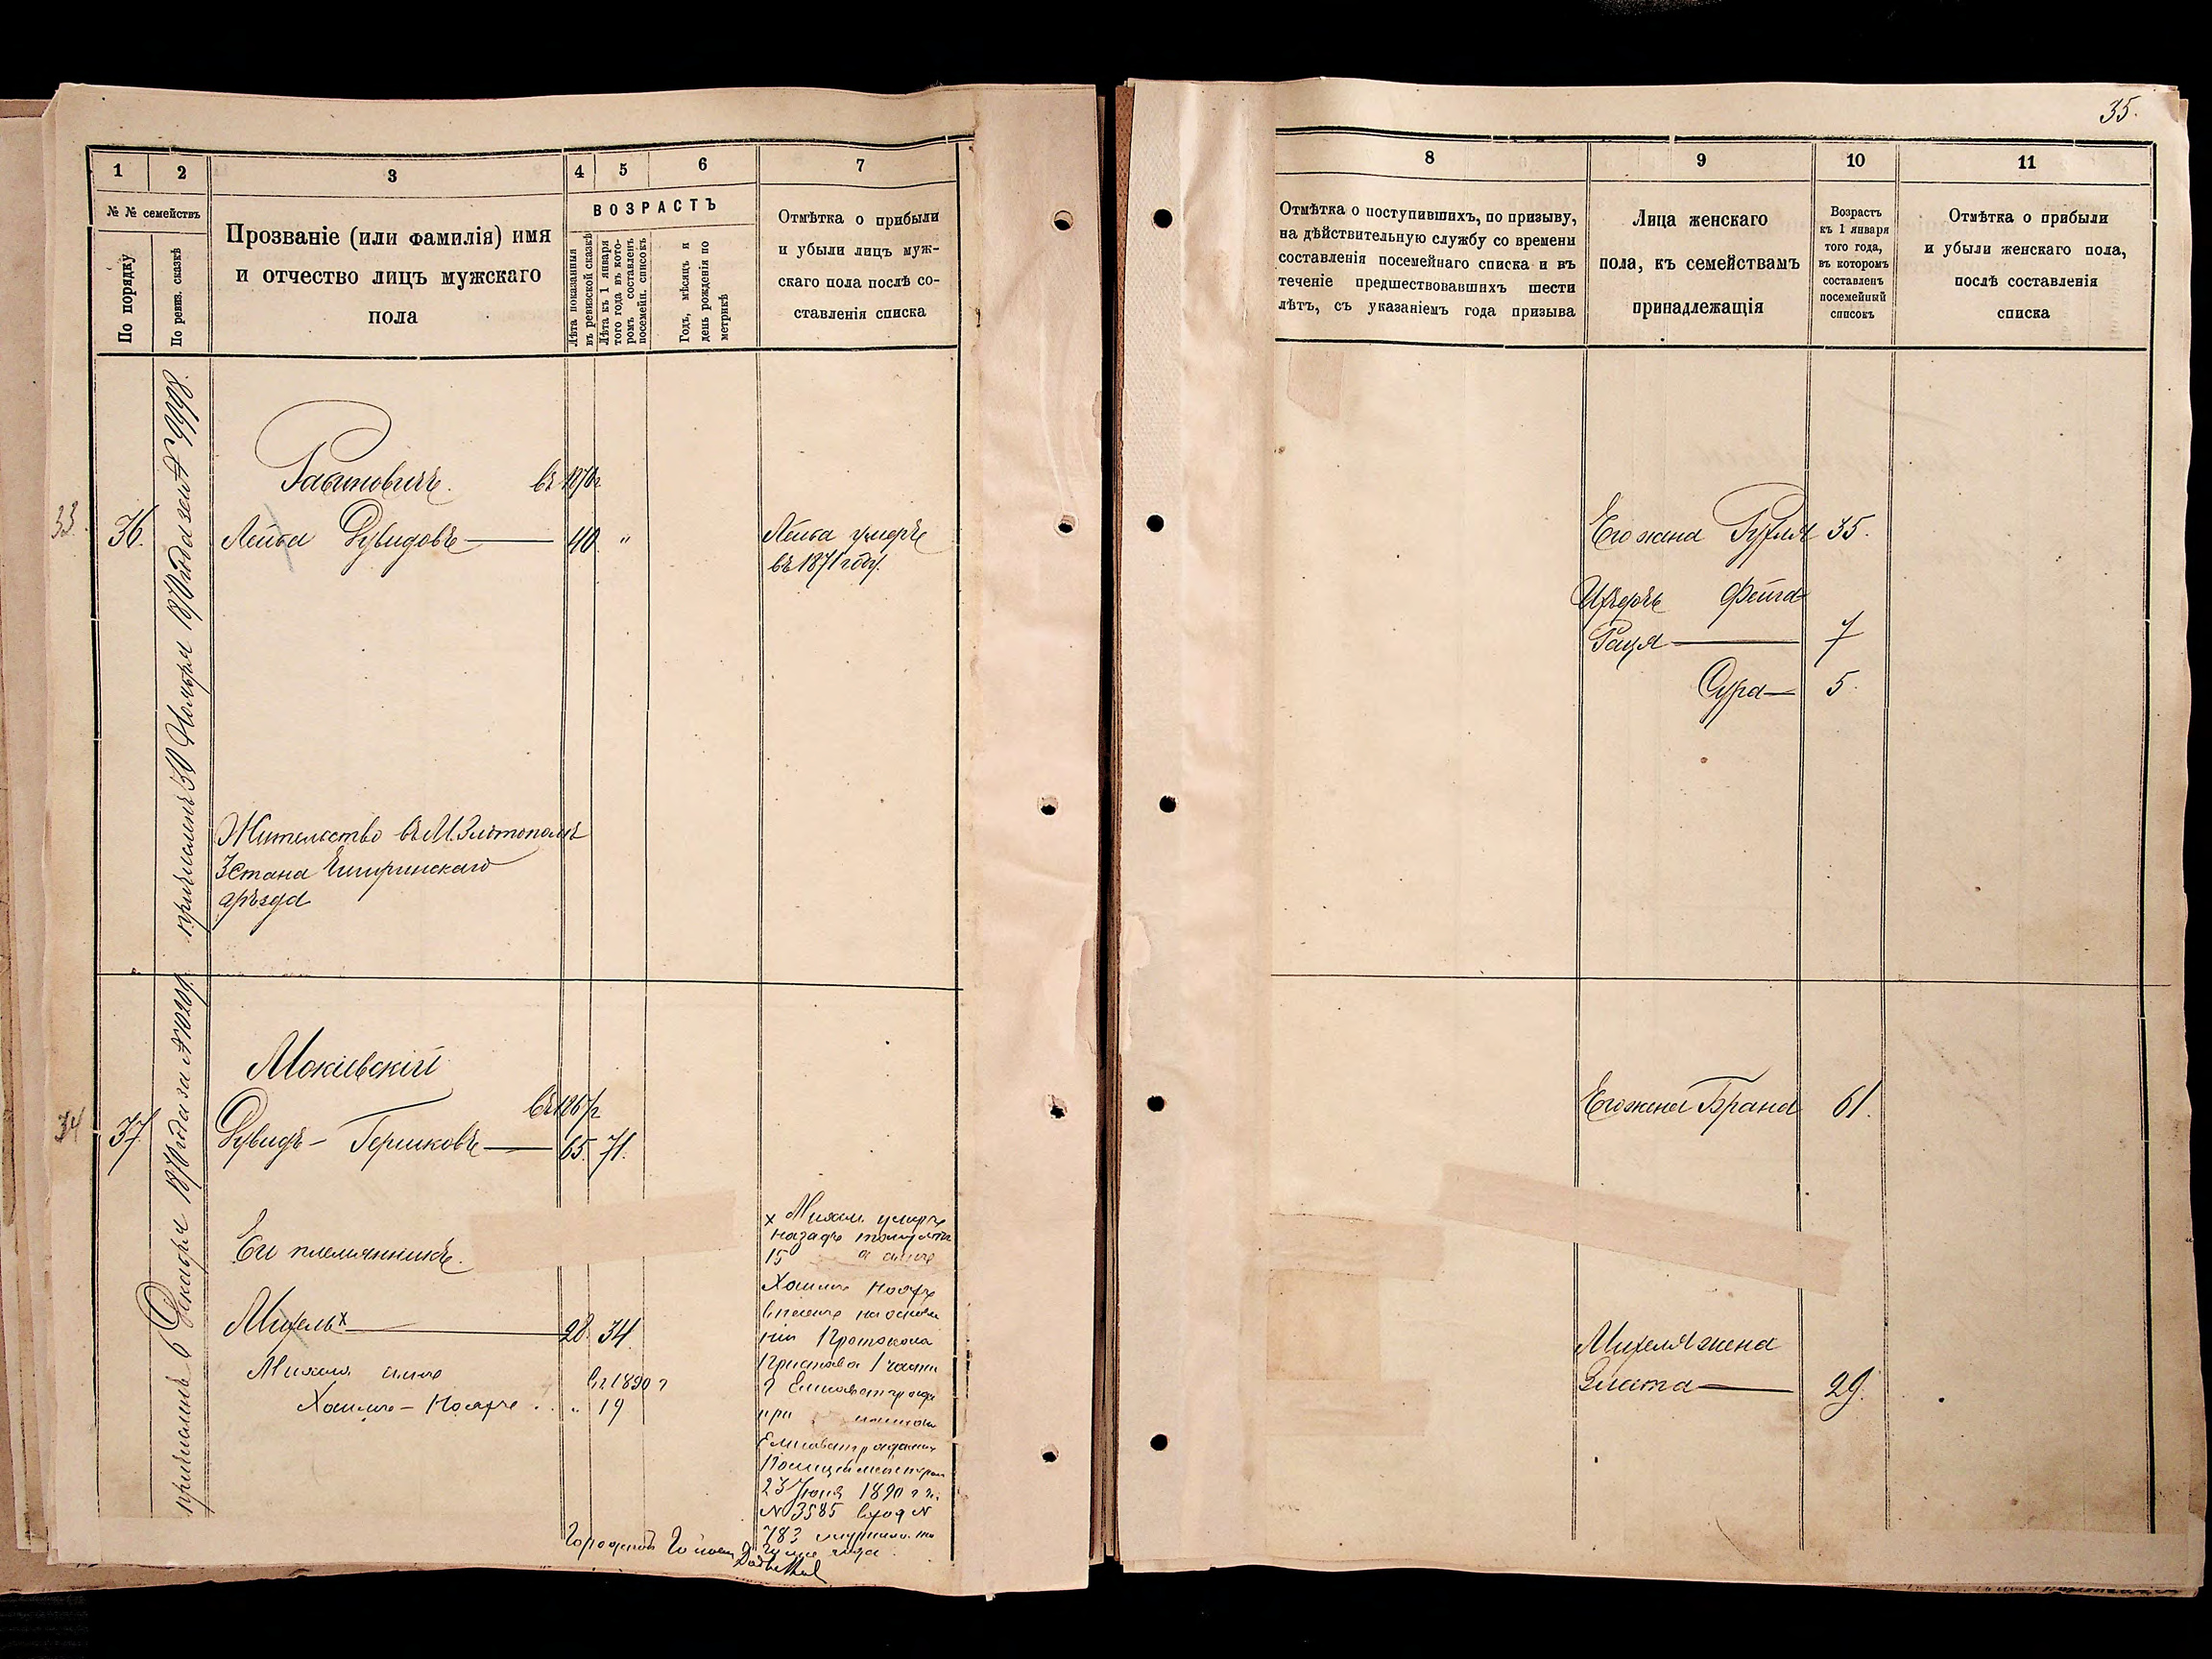 35.
1
2
3
4
5
6
7
№ № семействъ
По порядку
По ревиз. сказкѣ
Прозваніе (или фамилія) имя
и отчество лицъ мужскаго
пола
ВОЗРАСТЪ
Лѣта показанныя
въ ревизской сказкѣ
Лѣта къ 1 января
того года въ кото-
ромъ составленъ
посемейн. списокъ
Годъ, мѣсяцъ и
день рожденія по
метрикѣ
Отмѣтка о прибыли
и убыли лицъ муж-
скаго пола послѣ со-
ставленія списка
33.
36.
причисленъ 30 Ноября 1870 года за № 9998.
Рабиновичъ.
въ 1870 г
Лейба Дувидовъ — 40. "
Лейба умеръ
въ 1871 году.
Жительство въ М. Златополѣ
3 Стана Чигиринскаго
уѣзда
34
37
причисленъ 6 Декабря 1870 года за № 10209.
Мокіевскій
въ 1867 г
Дувидъ - Гершковъ — 65. 71.
Его племянникъ.
Михель x — 28. 34.
Михеля сынъ
въ 1890 г
Хаимъ - Ноахъ . . " 19
x Михель умеръ
назадъ тому лѣтъ
15 а сынъ
Хаимъ Ноахъ
внесенъ на основа
ніи Протокола
Пристава 1 части
г Елисаветграда
при
Елисаветградскаго
Полицеймейстера
23 Іюня 1890 г за
№ 3585 вход №
783
Городской Голова
8
9
10
11
Отмѣтка о поступившихъ, по призыву,
на дѣйствительную службу со времени
составленія посемейнаго списка и въ
теченіе предшествовавшихъ шести
лѣтъ, съ указаніемъ года призыва
Лица женскаго
пола, къ семействамъ
принадлежащія
Возрастъ
къ 1 января
того года,
въ которомъ
составленъ
посемейный
списокъ
Отмѣтка о прибыли
и убыли женскаго пола,
послѣ составленія
списка
Его жена Рухля 35.
Фейга
Рация — 7
Сура — 5.
Его жена Брана 61.
Михеля жена
Злата — 29.